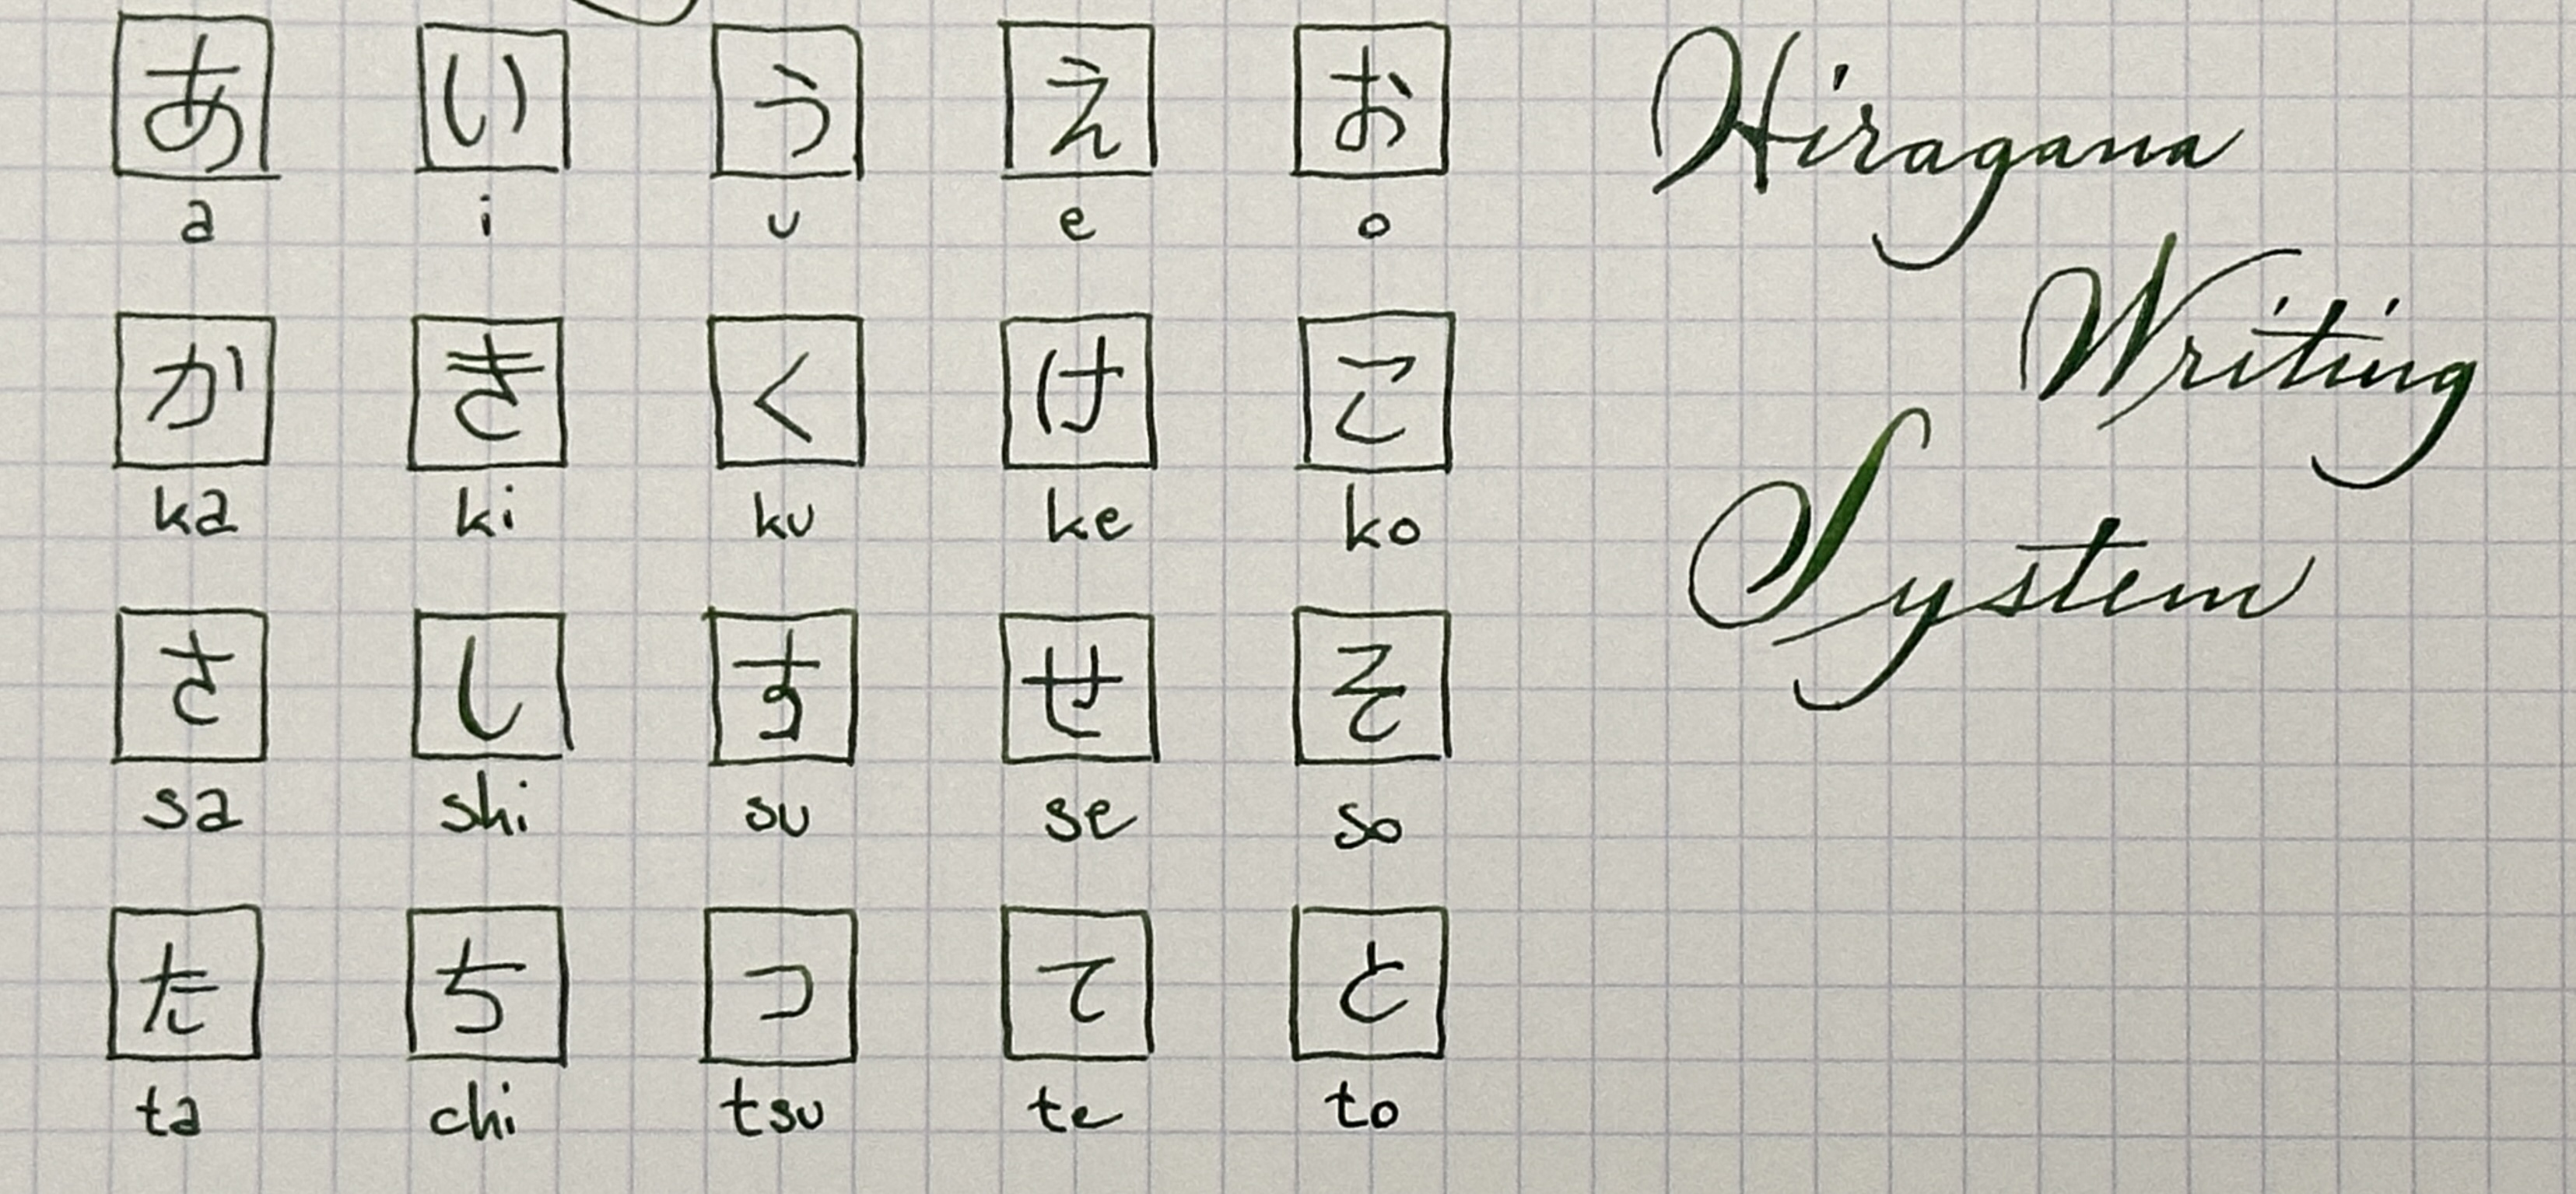 あ い う え お
a i u e o
か き く け こ
ka ki ku ke ko
さ し す せ そ
sa shi su se so
た ち つ て と
ta chi tsu te to
Hiragana
Writing
System